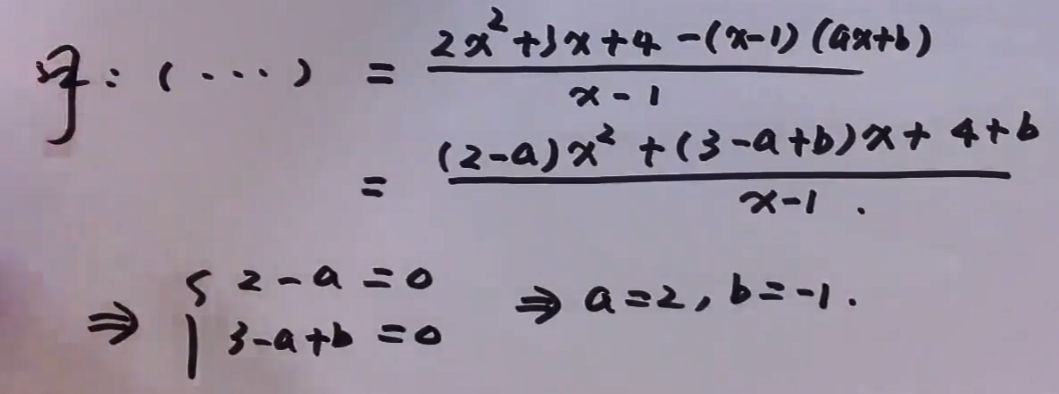 解: (...) = \frac{2x^2+3x+4-(x-1)(ax+b)}{x-1}
= \frac{(2-a)x^2+(3-a+b)x+4+b}{x-1}.
⇒ { 2-a=0 ⇒ a=2, b=-1.
3-a+b=0